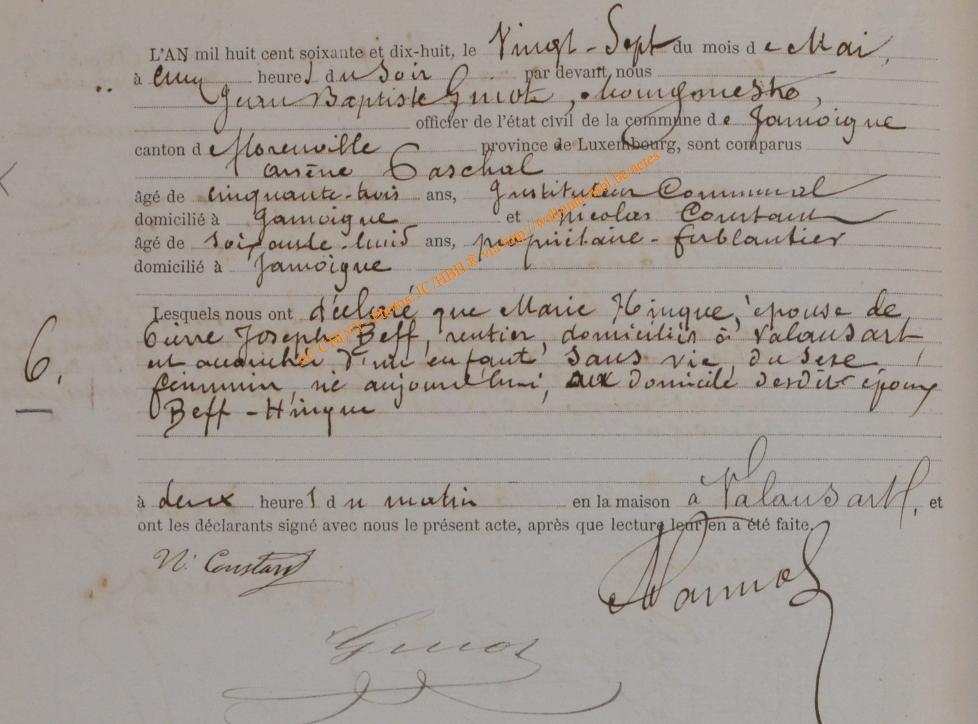 L'AN mil huit cent soixante et dix-huit, le Vingt-Sept du mois de Mai,
à cinq heures du Soir par devant nous
Jean Baptiste Guiot, bourgmestre,
officier de l'état civil de la commune de Jamoigne
canton de Florenville province de Luxembourg, sont comparus
arsène Paschal
âgé de cinquante-trois ans, Instituteur Communal
domicilié à Jamoigne et Nicolas Constant
âgé de Soixante-huit ans, propriétaire-ferblantier
domicilié à Jamoigne
Lesquels nous ont déclaré que Marie Hinque, épouse de
6. Pierre Joseph Beff, rentier, domiciliés à Valansart
est accouchée d'un enfant Sans vie, du Sexe
féminin, né aujourd'hui, aux domicile desdits époux
Beff-Hinque
à deux heures du matin en la maison à Valansart, et
ont les déclarants signé avec nous le présent acte, après que lecture leur en a été faite.
N. Constant
Guiot